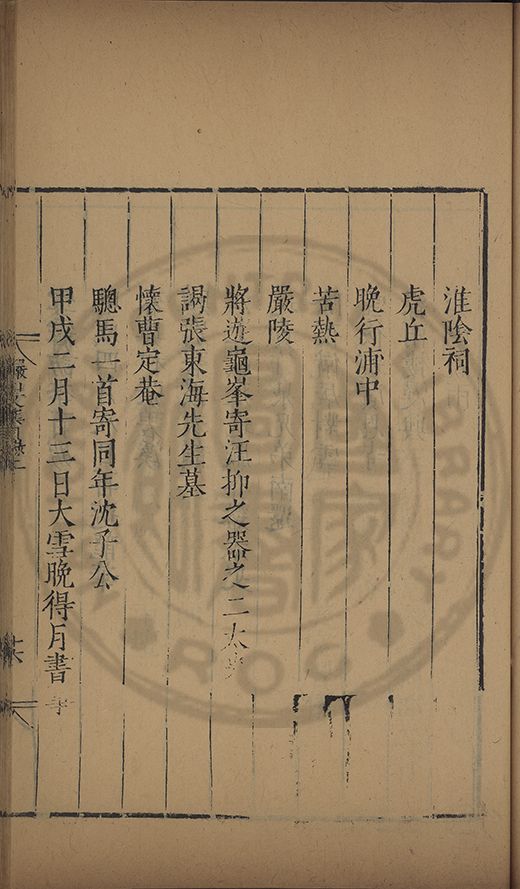 淮陰祠
虎丘
晚行浦中
苦熱
嚴陵
將遊龜峯寄汪抑之器之二太
謁張東海先生墓
懷曹定菴
驄馬一首寄同年沈子公
甲戌二月十三日大雪晚得月書
ROC